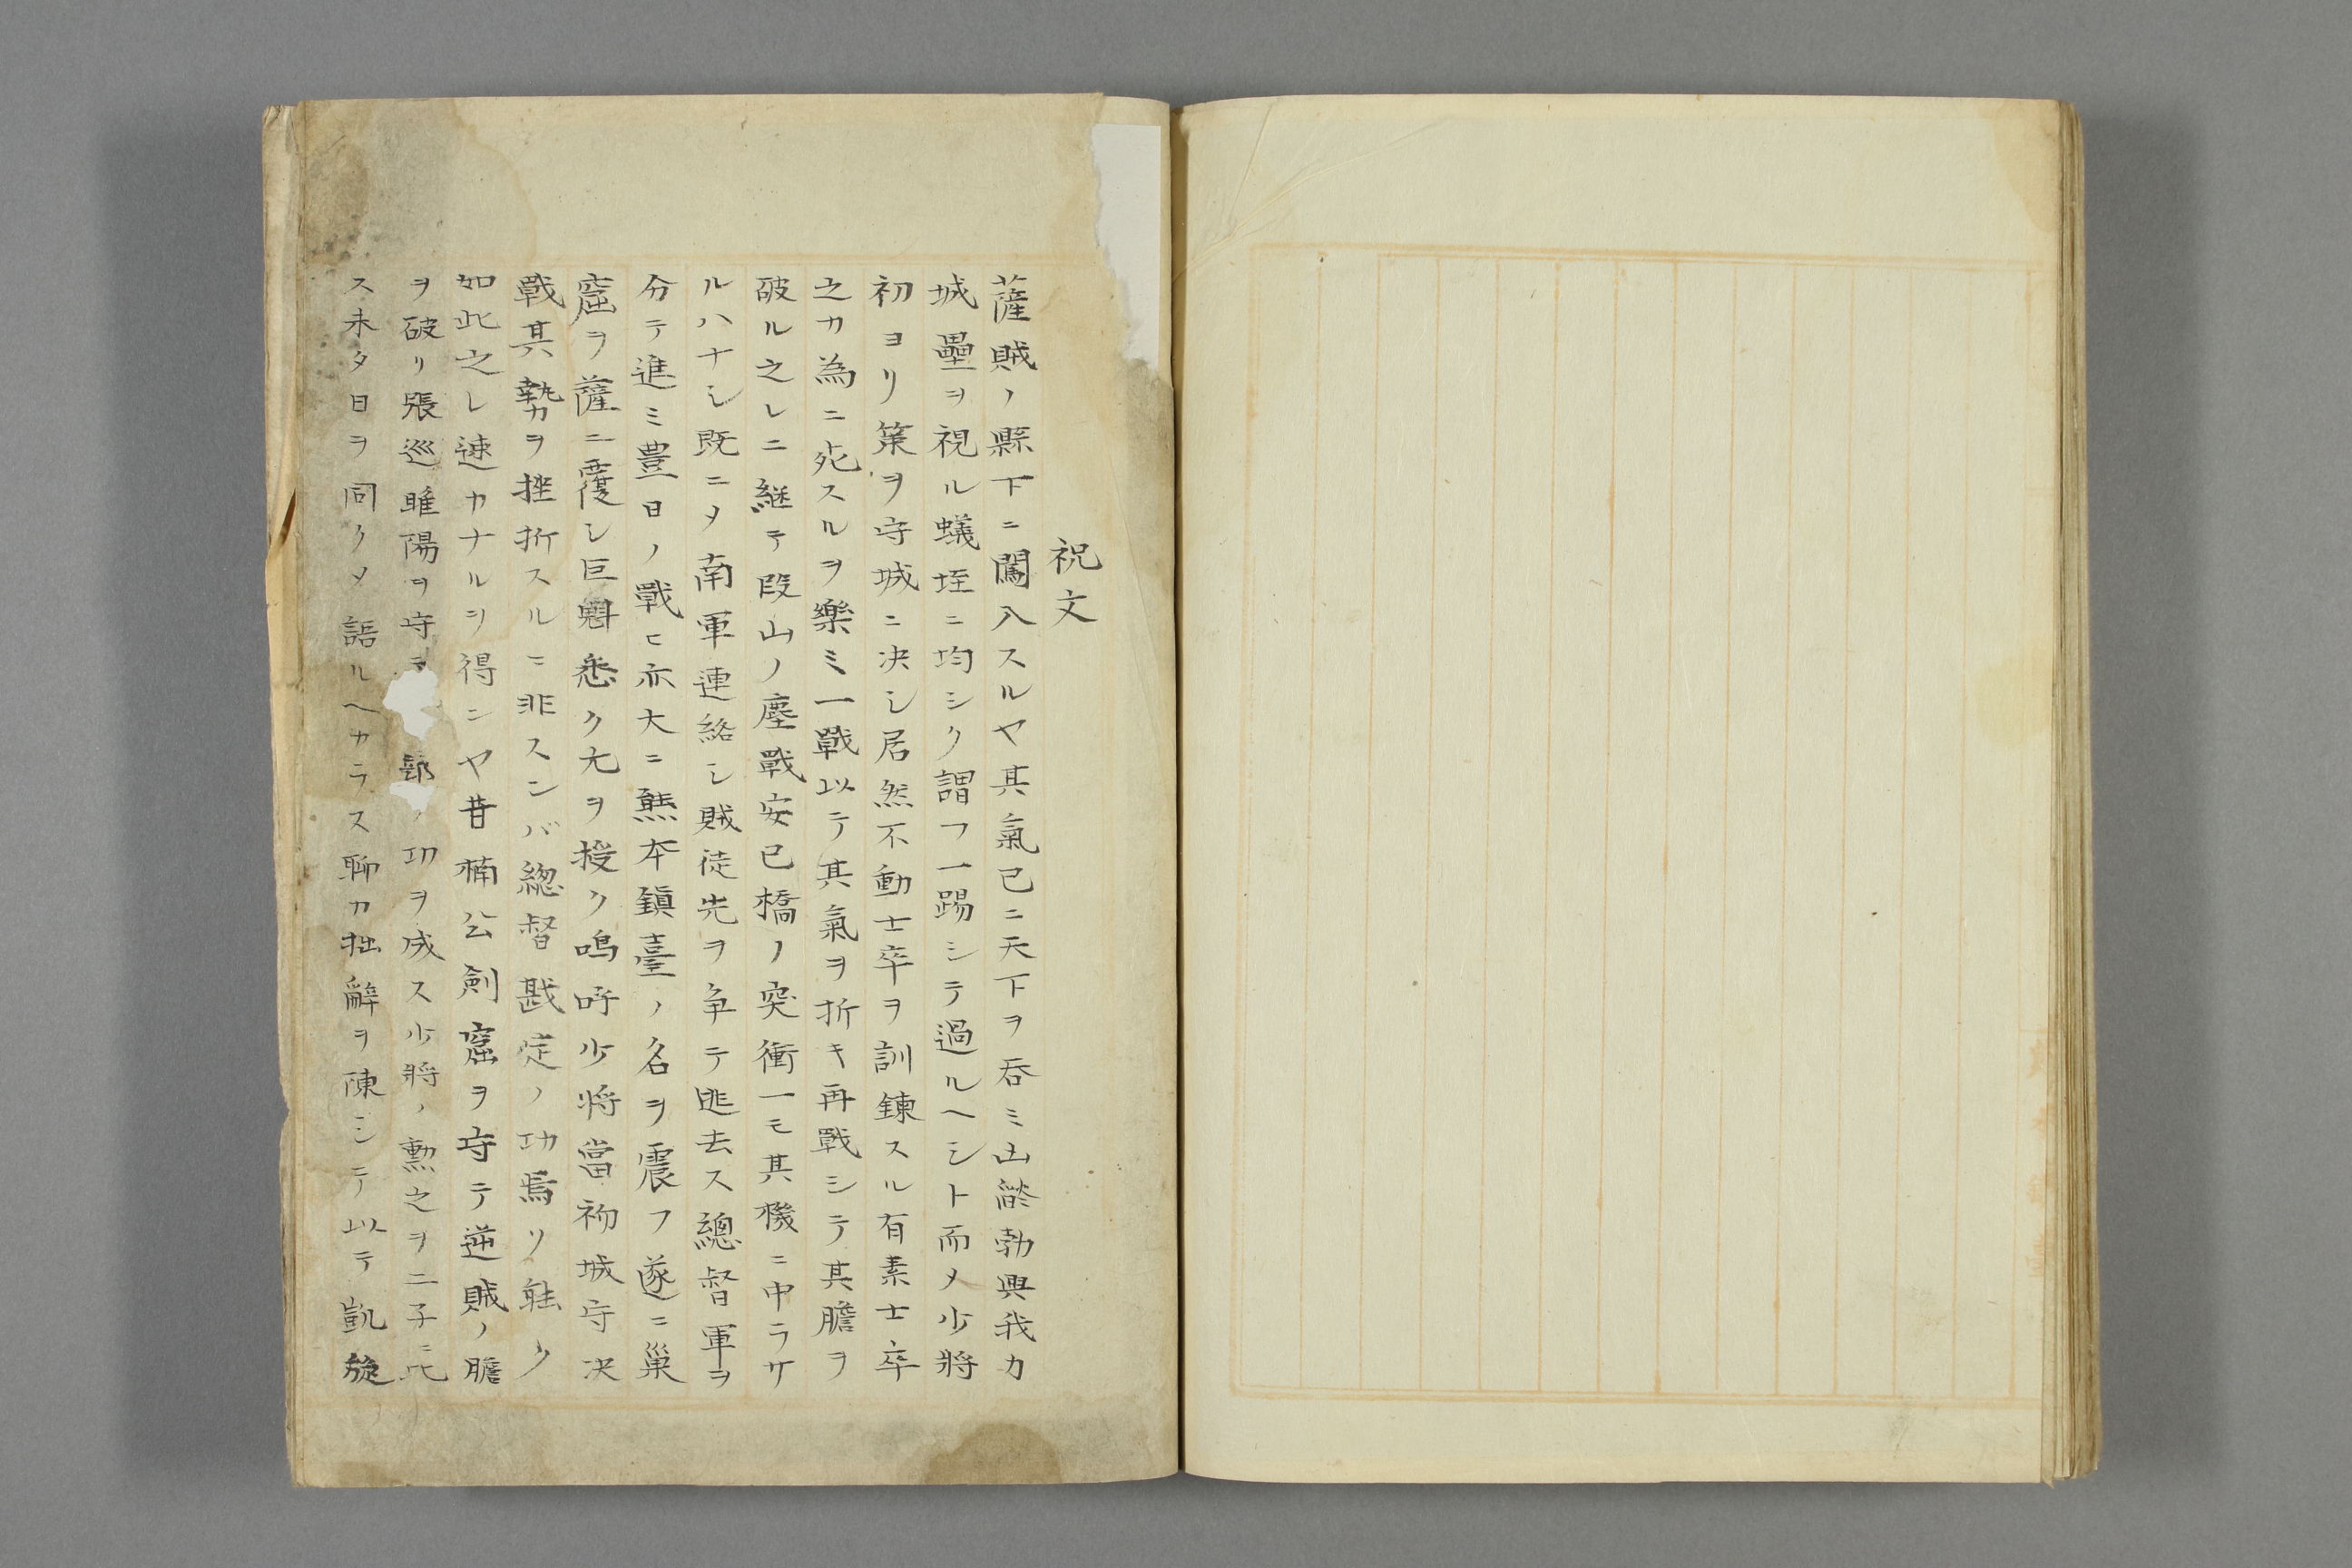 祝文
薩賊ノ縣下ニ闖入スルヤ其氣已ニ天下ヲ呑ミ山谿勃興我カ
城壘ヲ視ル蟻垤ニ均シク謂フ一踢シテ過ルヘシト而メ少將
初ヨリ策ヲ守城ニ决シ居然不動士卒ヲ訓鍊スル有素士卒
之カ為ニ死スルヲ樂ミ一戰以テ其氣ヲ折キ再戰シテ其膽ヲ
破ル之レニ継テ段山ノ塵戰安已橋ノ突衝一モ其機ニ中ラサ
ルハナシ既ニメ南軍連絡シ賊徒先ヲ争テ逃去ス總督軍ヲ
分テ進ミ豊日ノ戰ヒ亦大ニ熊本鎮臺ノ名ヲ震フ遂ニ巢
窟ヲ薩ニ覆シ巨魁悉ク尢ヲ授ク嗚呼少将當初城守决
戰其勢ヲ挫折スルニ非スンバ総督戡定ノ功焉リ能ク
如此之レ速カナルヲ得ンヤ昔楠公剣窟ヲ守テ逆賊ノ膽
ヲ破リ張巡雎陽ヲ守テ ノ功ヲ成ス少將ノ勲之ヲ二子ニ比
ス未タ日ヲ同クメ語ルヘカラス聊カ拙辭ヲ陳シテ以テ凱旋